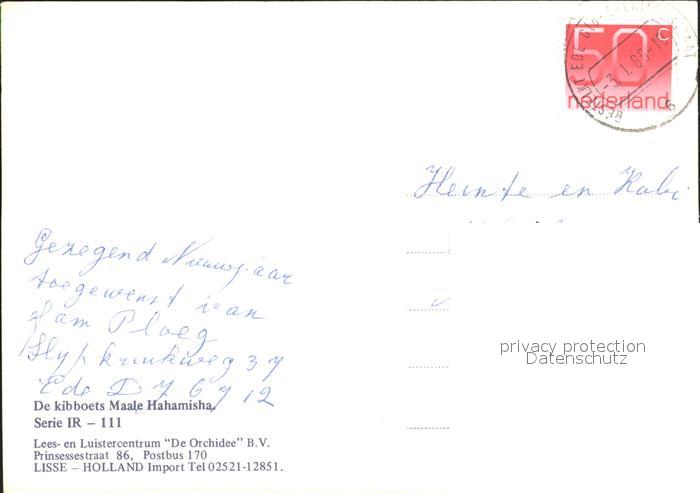 50 c
nederland
-3.1.80-1
Heinte en Kobi
Gezegend Nieuwjaar
toegewenst van
fam Ploeg
37
Ede
De kibboets Maale Hahamisha.
Serie IR – 111
Lees- en Luistercentrum "De Orchidee" B.V.
Prinsessestraat 86, Postbus 170
LISSE – HOLLAND Import Tel 02521-12851.
privacy protection
Datenschutz